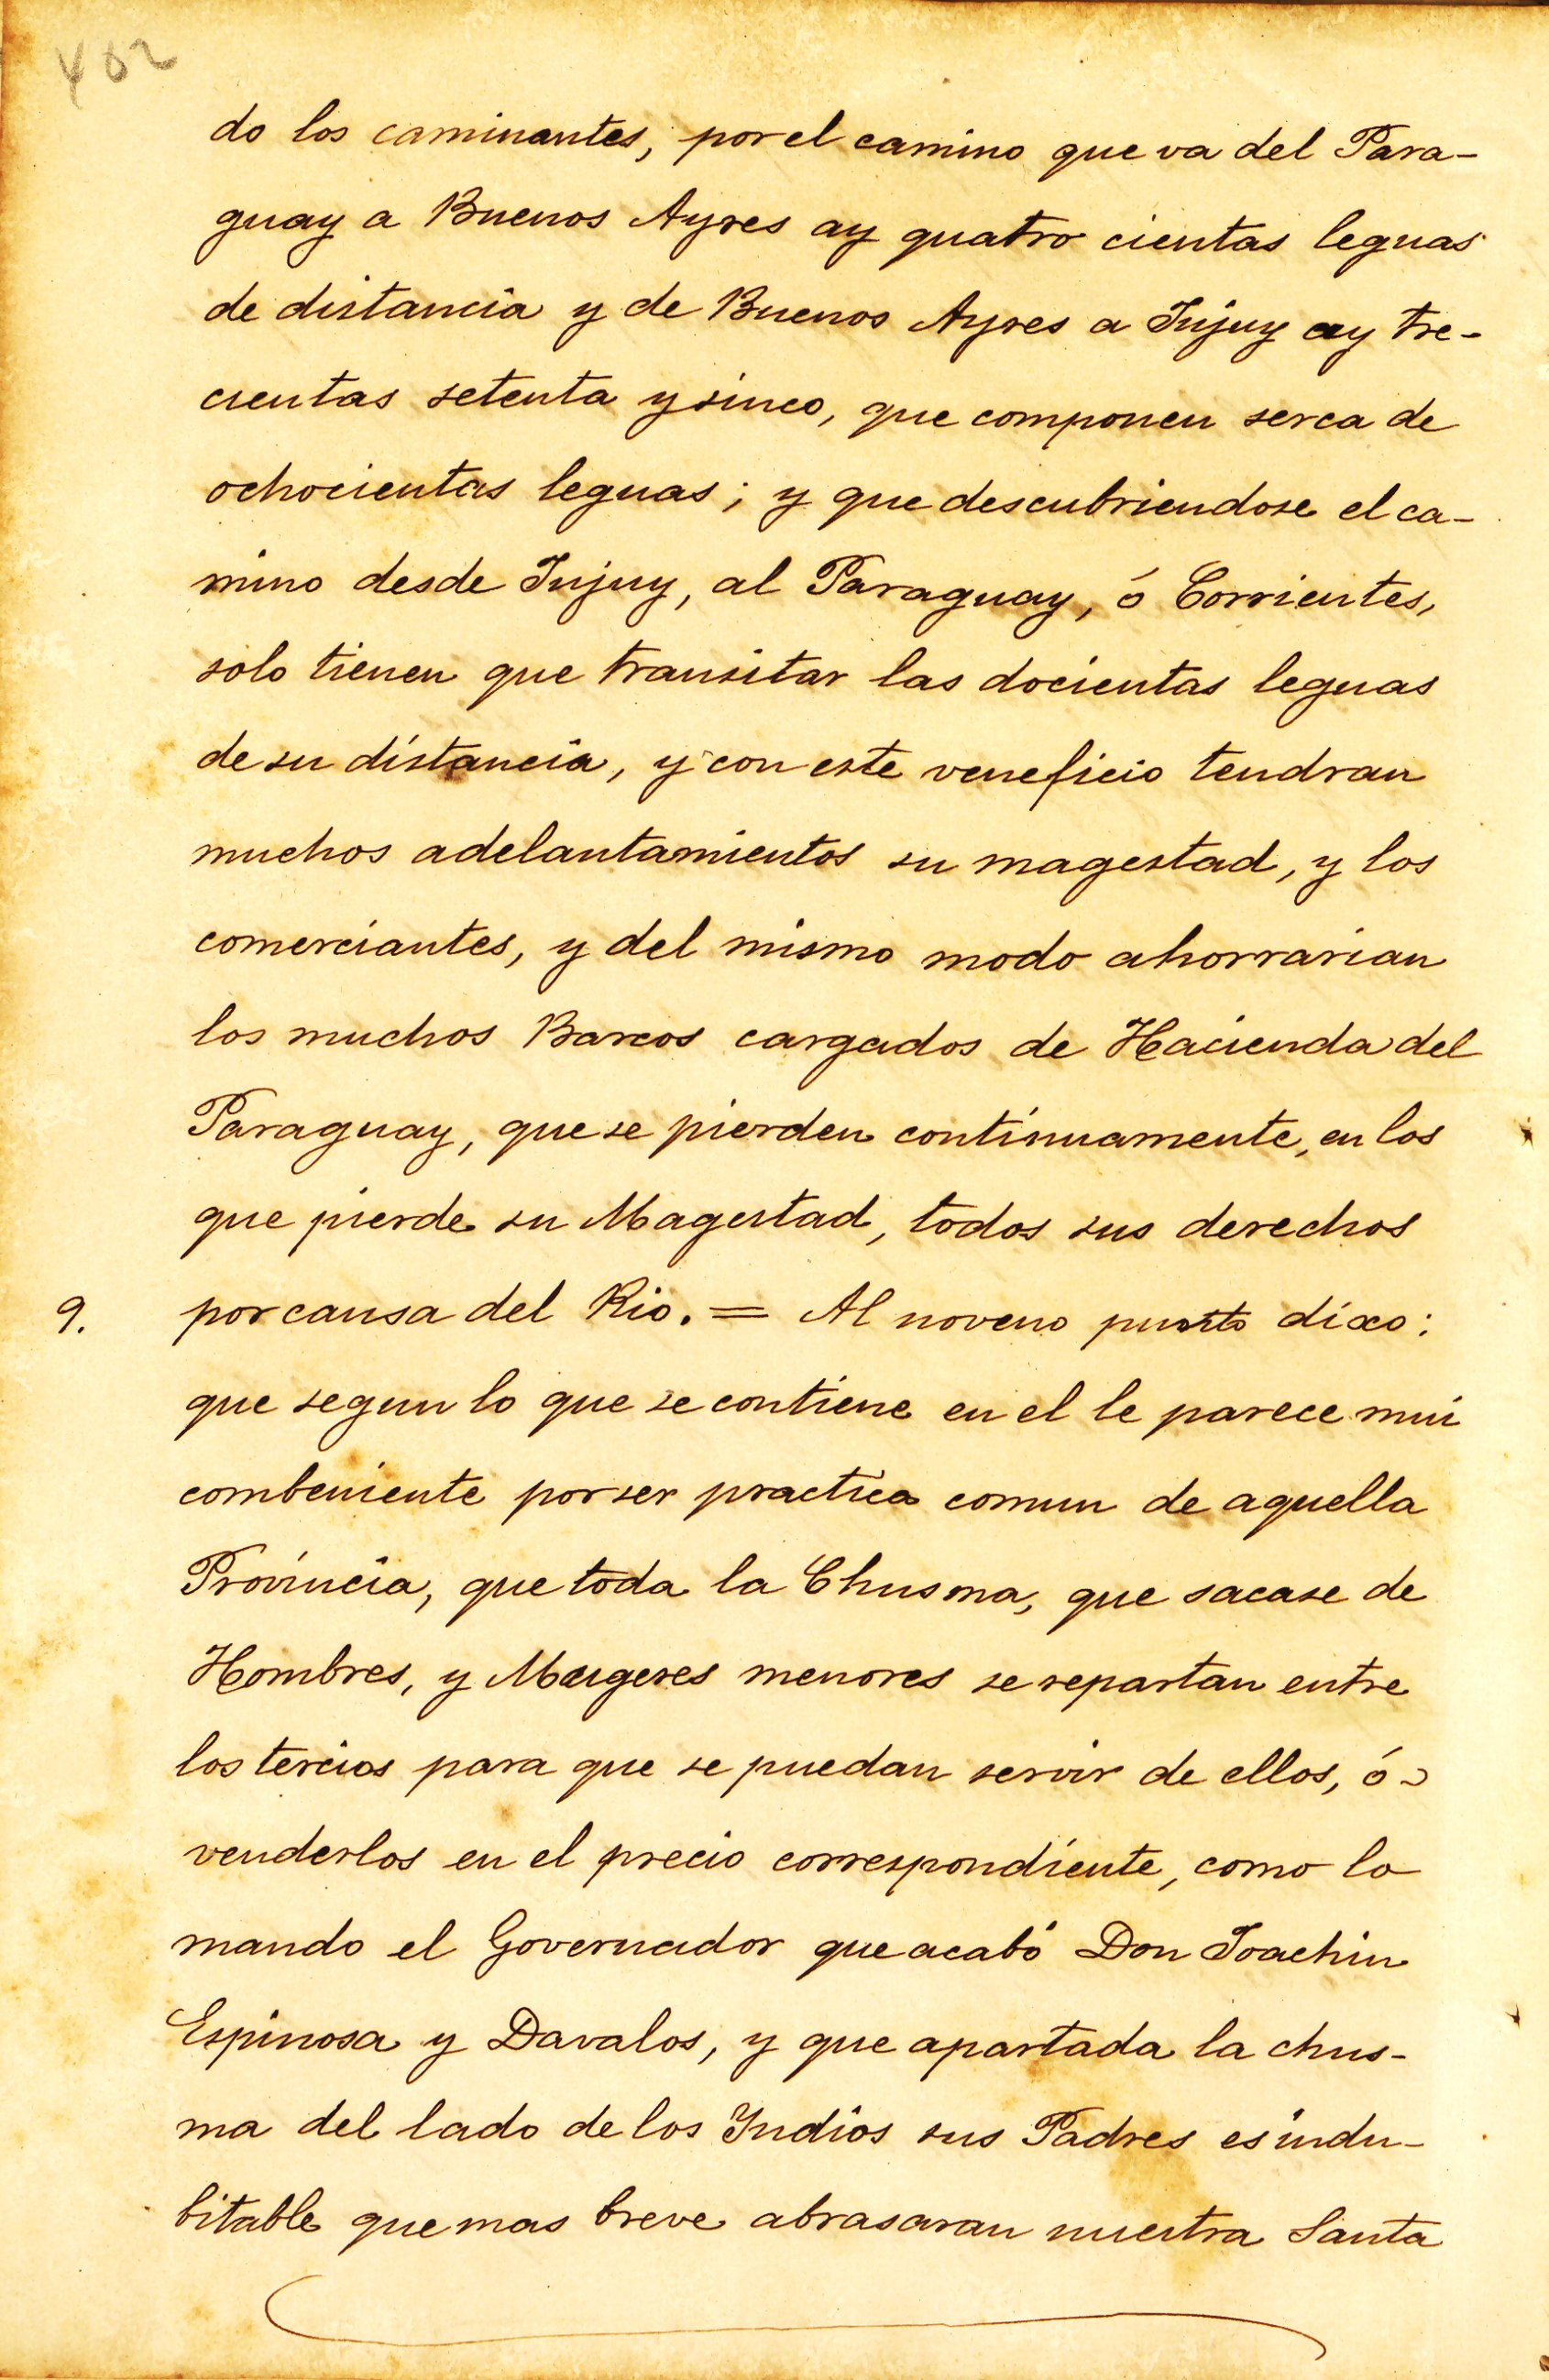 402
do los caminantes, por el camino que va del Para-
guay a Buenos Ayres ay quatro cientas leguas
de distancia y de Buenos Ayres a Jujuy ay tre-
cientas setenta y sinco, que componen serca de
ochocientas leguas; y que descubriendose el ca-
mino desde Jujuy, al Paraguay, ó Corrientes,
solo tienen que transitar las docientas leguas
de su distancia, y con este veneficio tendran
muchos adelantamientos su magestad, y los
comerciantes, y del mismo modo ahorrarian
los muchos Barcos cargados de Hacienda del
Paraguay, que se pierden continuamente, en los
que pierde su Magestad, todos sus derechos
9. por causa del Rio. = Al noveno punto dixo:
que segun lo que se contiene en el le parece mui
combeniente por ser practica comun de aquella
Provincia, que toda la Chusma, que sacase de
Hombres, y Mugeres menores se repartan entre
los tercios para que se puedan servir de ellos, ó
venderlos en el precio correspondiente, como lo
mando el Governador que acabó Don Joachin
Espinosa y Davalos, y que apartada la chus-
ma del lado de los Indios sus Padres es indu-
bitable que mas breve abrasaran nuestra Santa